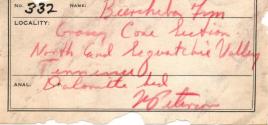 No. 332 NAME: Beersheba Fm
LOCALITY: Grassy Cove Section
North end Sequatchie Valley
Tennessee
ANAL: Dolomite
Peterson